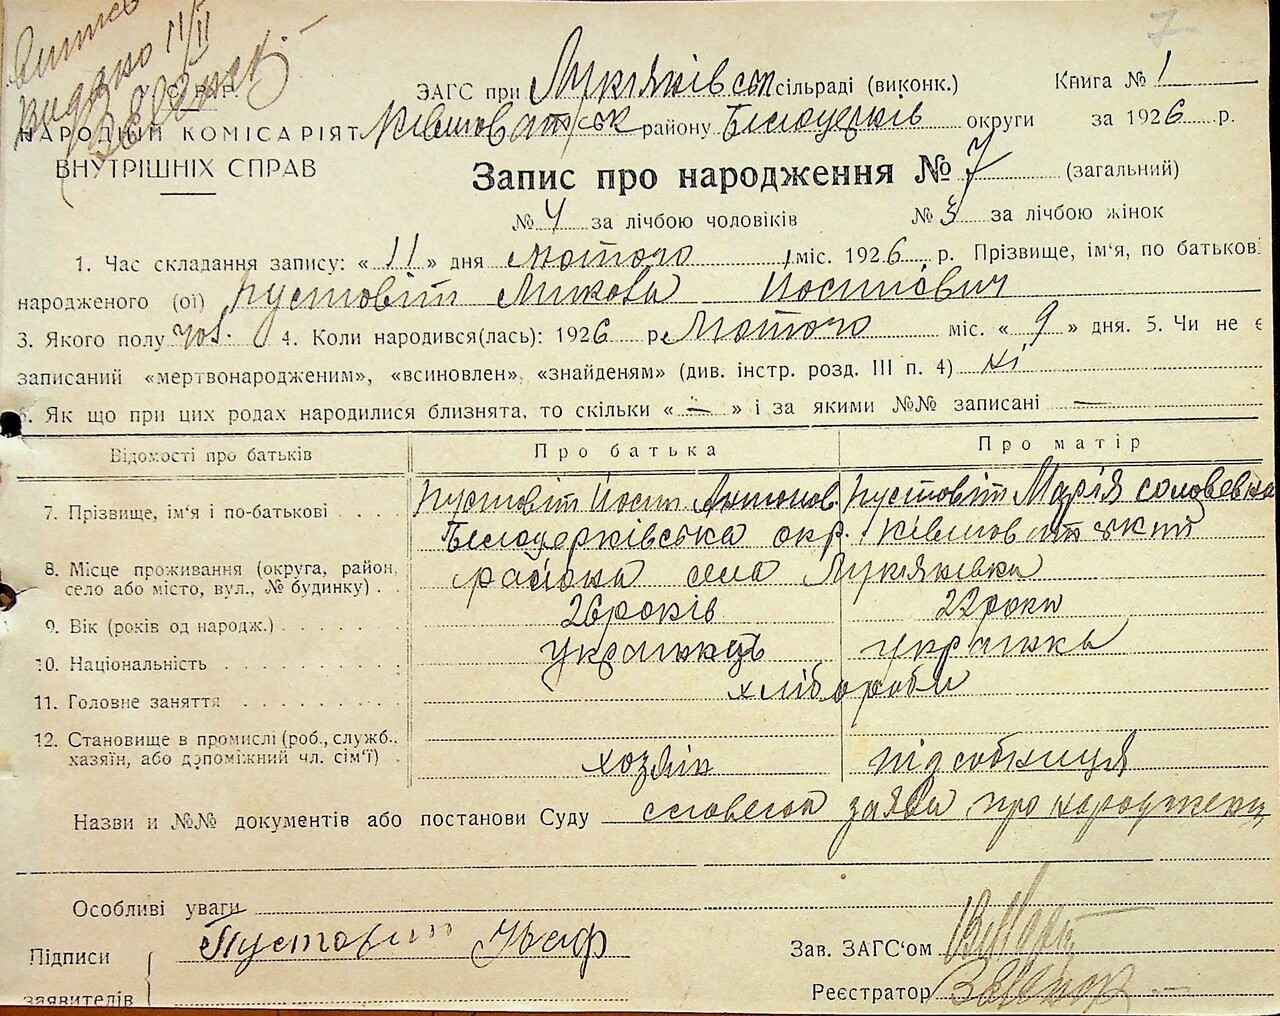 7
видано 11/II
У. С. Р. Р.
НАРОДНИЙ КОМІСАРІЯТ
ВНУТРІШНІХ СПРАВ
ЗАГС при Лукіяківськ сільраді (виконк.) Книга № 1
Ківшоватськ району Білоцерків округи за 1926 р.
Запис про народження № 7 (загальний)
№ 4 за лічбою чоловіків № 3 за лічбою жінок
1. Час складання запису: « 11 » дня лютого міс. 1926 р. Прізвище, ім'я, по батькові
народженого (ої) Пустовіт Микола Йосипович
3. Якого полу чол. 4. Коли народився(лась): 1926 р. Лютого міс. « 9 » дня. 5. Чи не є
записаний «мертвонародженим», «всиновлен», «знайденям» (див. інстр. розд. III п. 4) ні
6. Як що при цих родах народилися близнята, то скільки « — » і за якими №№ записані —
Відомості про батьків Про батька Про матір
7. Прізвище, ім'я і по-батькові Пустовіт Йосип Антонов. Пустовіт Марія соловевна
Білоцерківська окр. Ківшоватський
8. Місце проживання (округа, район, село або місто, вул., № будинку) района села Лукіяківка
9. Вік (років од народж.) 26 років 22 роки
10. Національність українець українка
11. Головне заняття хлібороби
12. Становище в промислі (роб., служб., хазяїн, або допоміжний чл. сім'ї) хозяїн підсобниця
Назви и №№ документів або постанови Суду словесна заява про народження
Особливі уваги
Підписи заявителів Пустовит
Зав. ЗАГС'ом
Реєстратор